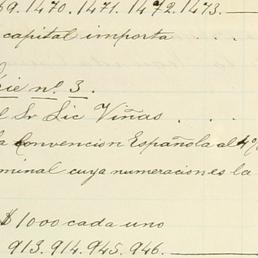 69. 1470. 1471. 1472. 1473.
capital importa . . .
ie nº. 3.
l Sr Lic Viñas . . .
la Convencion Española al 4%
minal cuya numeracion es la
$1000 cada uno
913. 914. 945. 946.